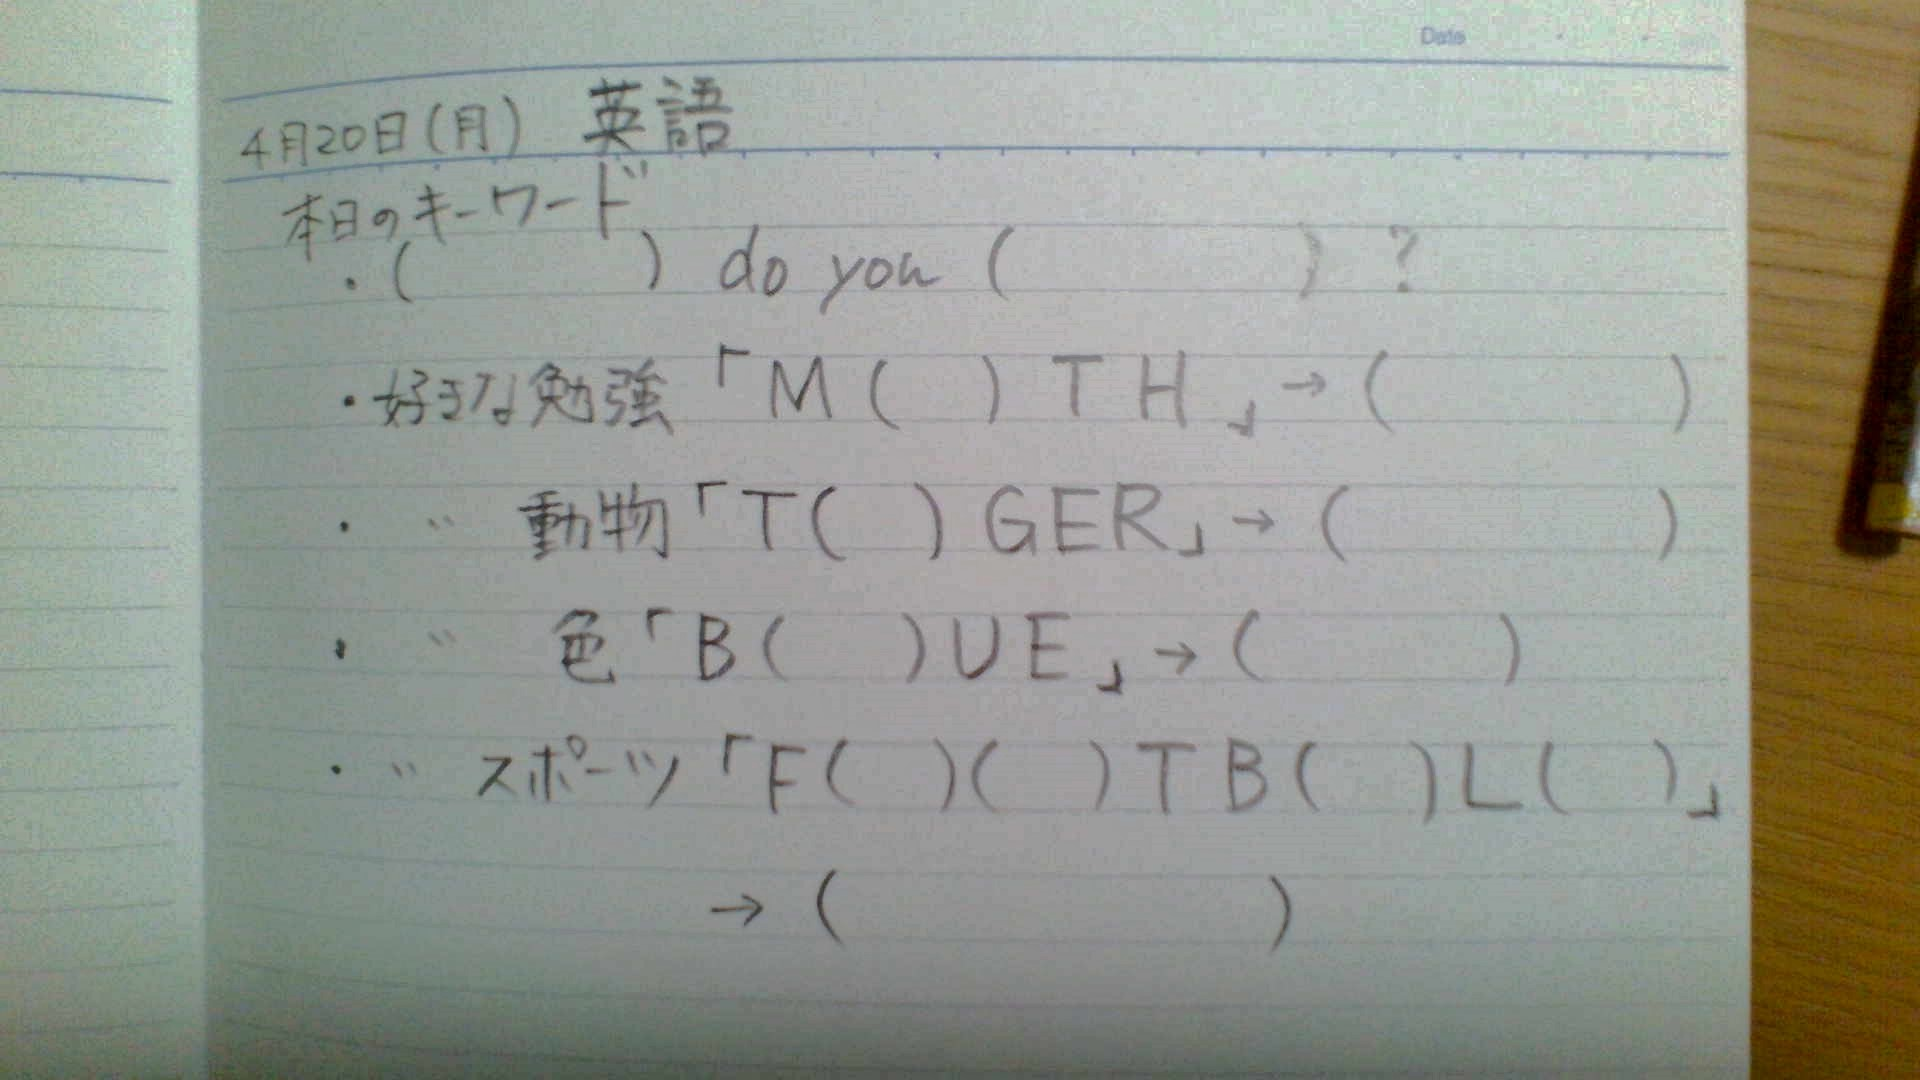 Date
4月20日(月) 英語
本日のキーワード
・( ) do you ( ) ?
・好きな勉強「M( )TH」→( )
・ 〃 動物「T( )GER」→( )
・ 〃 色「B( )UE」→( )
・ 〃 スポーツ「F( )( )TB( )L( )」
→( )